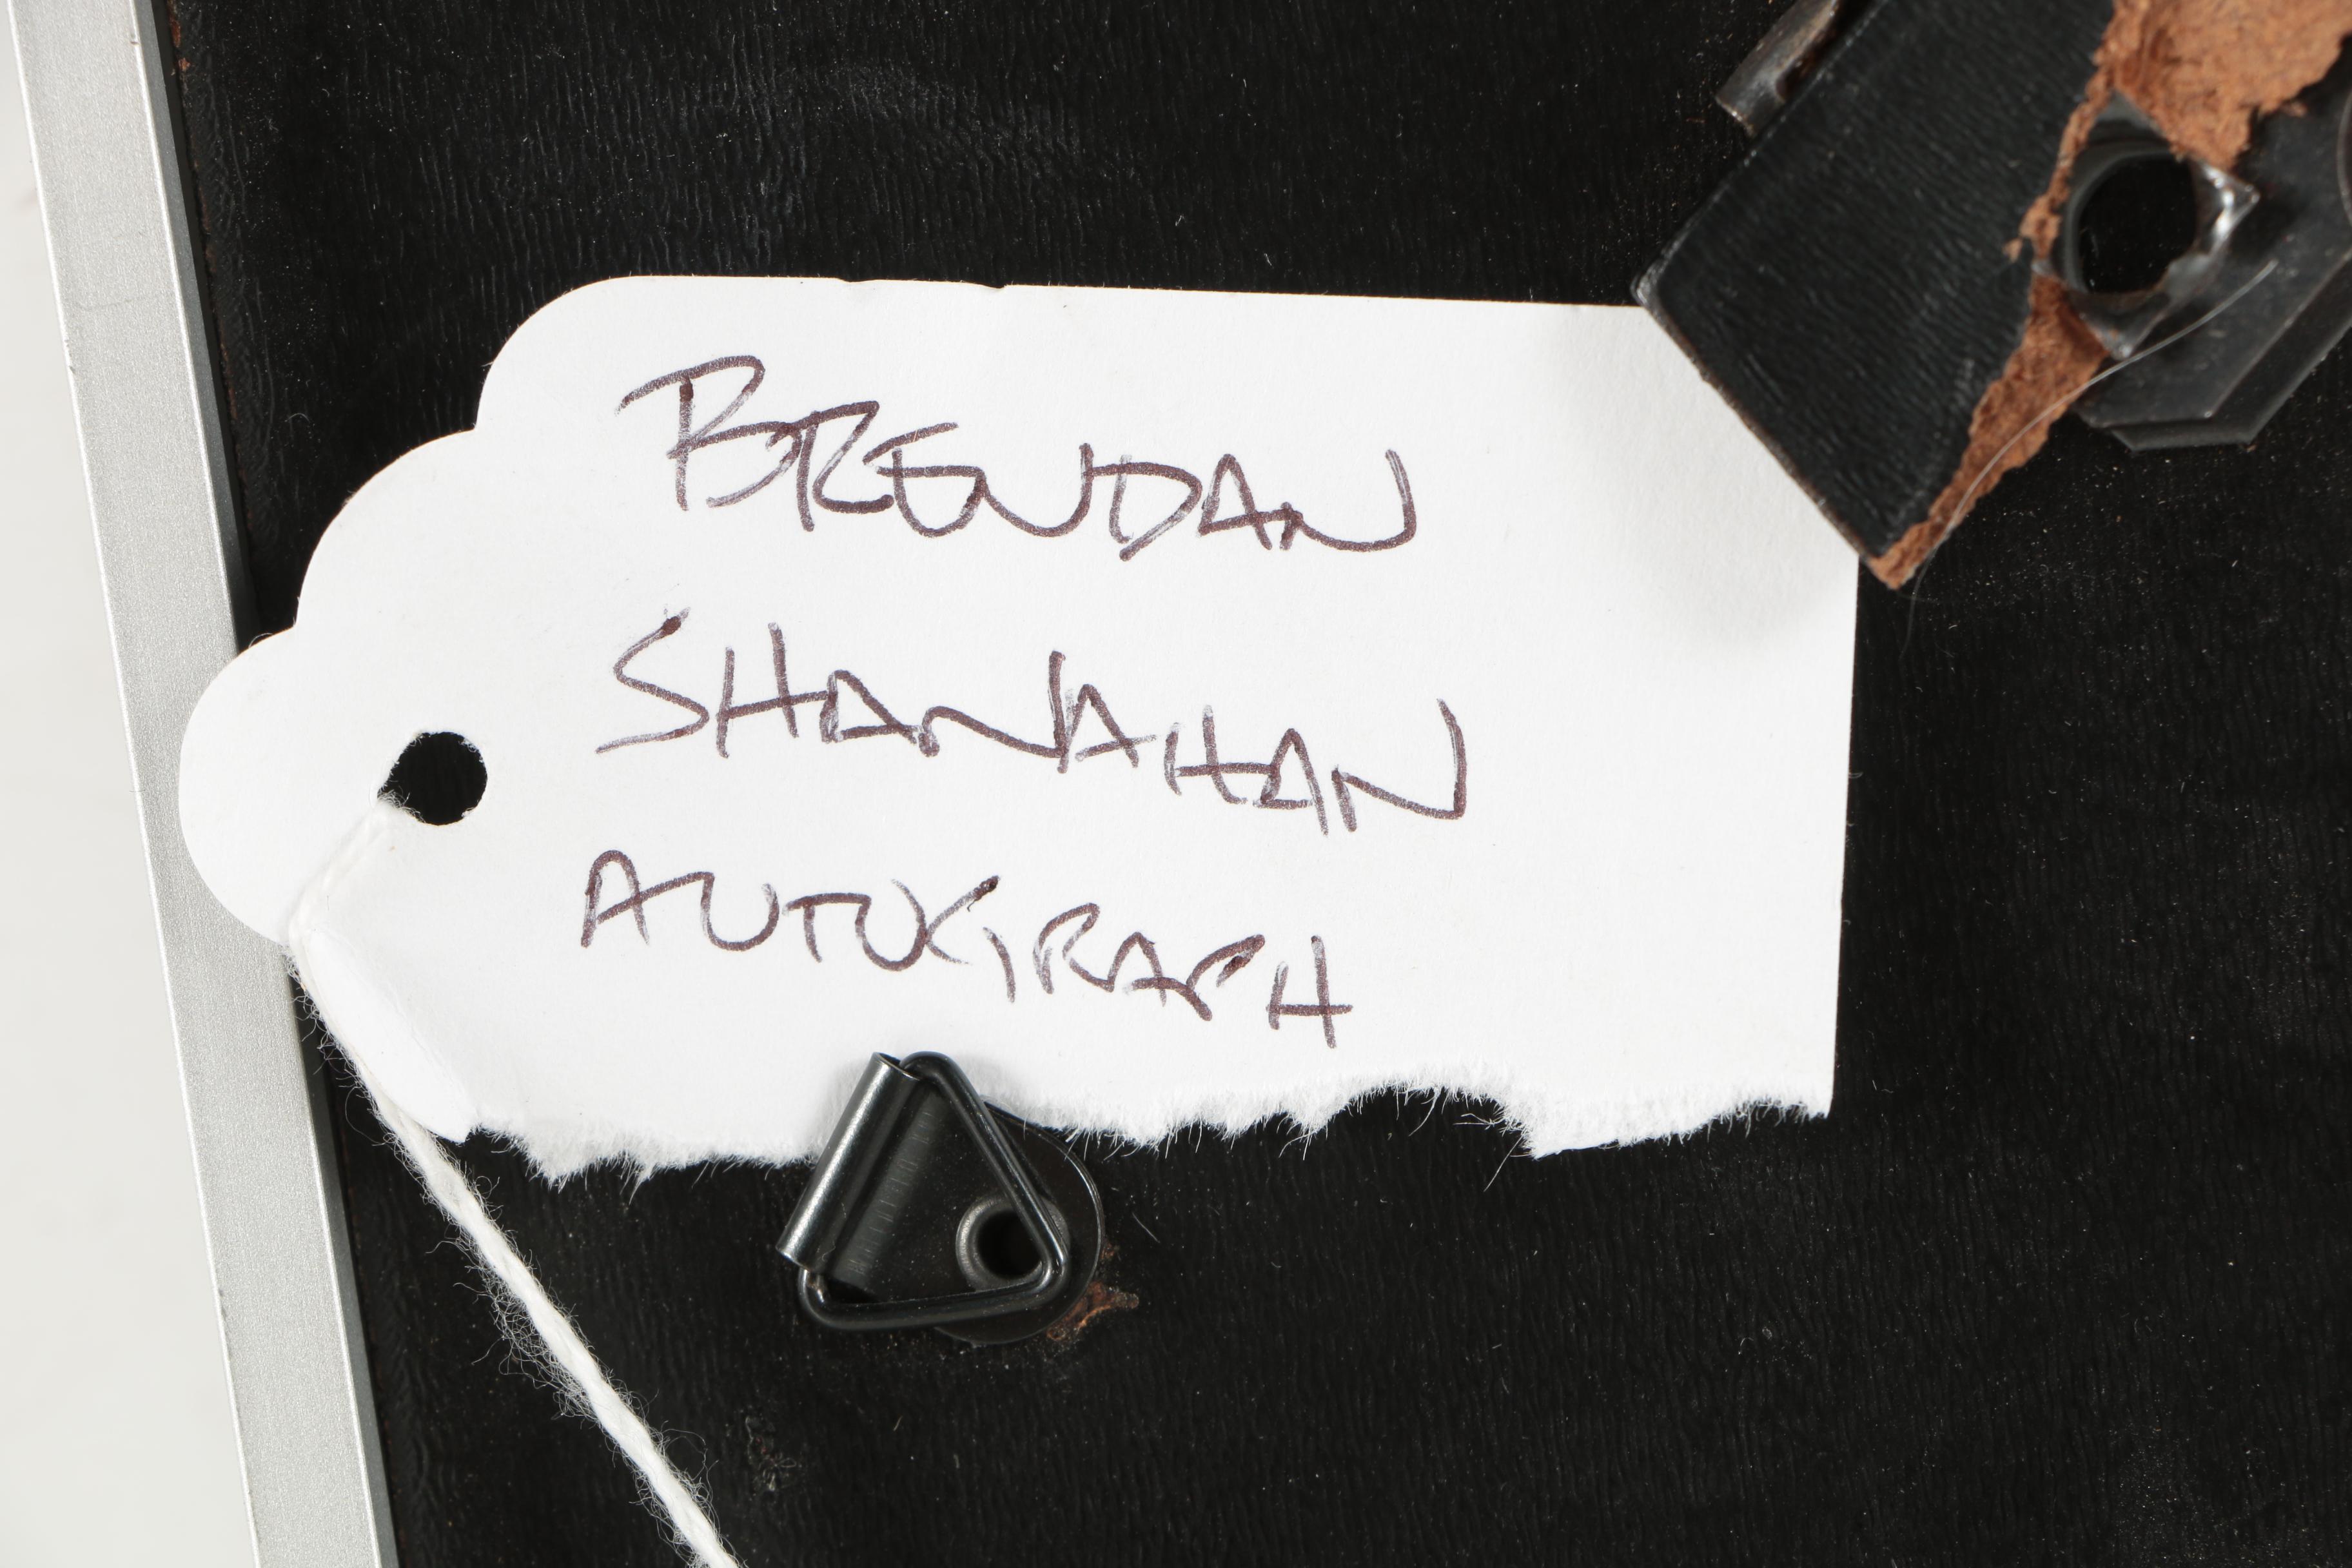 BRENDAN
SHANAHAN
AUTOGRAPH